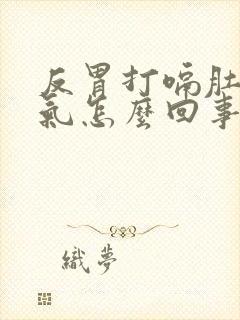 反胃打嗝肚
氣怎麼回事
織夢